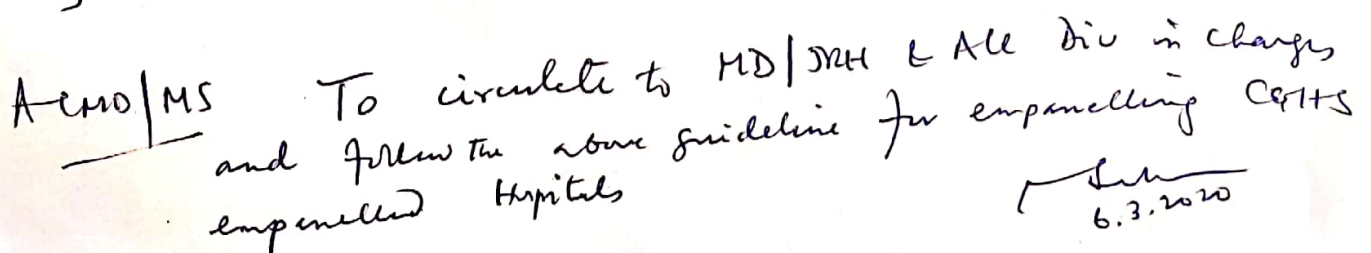 ACMO/MS To circulate to MD/JRH & All Div in charges
and follow the above guideline for empanelling CGHS
empanelled Hospitals
6.3.2020